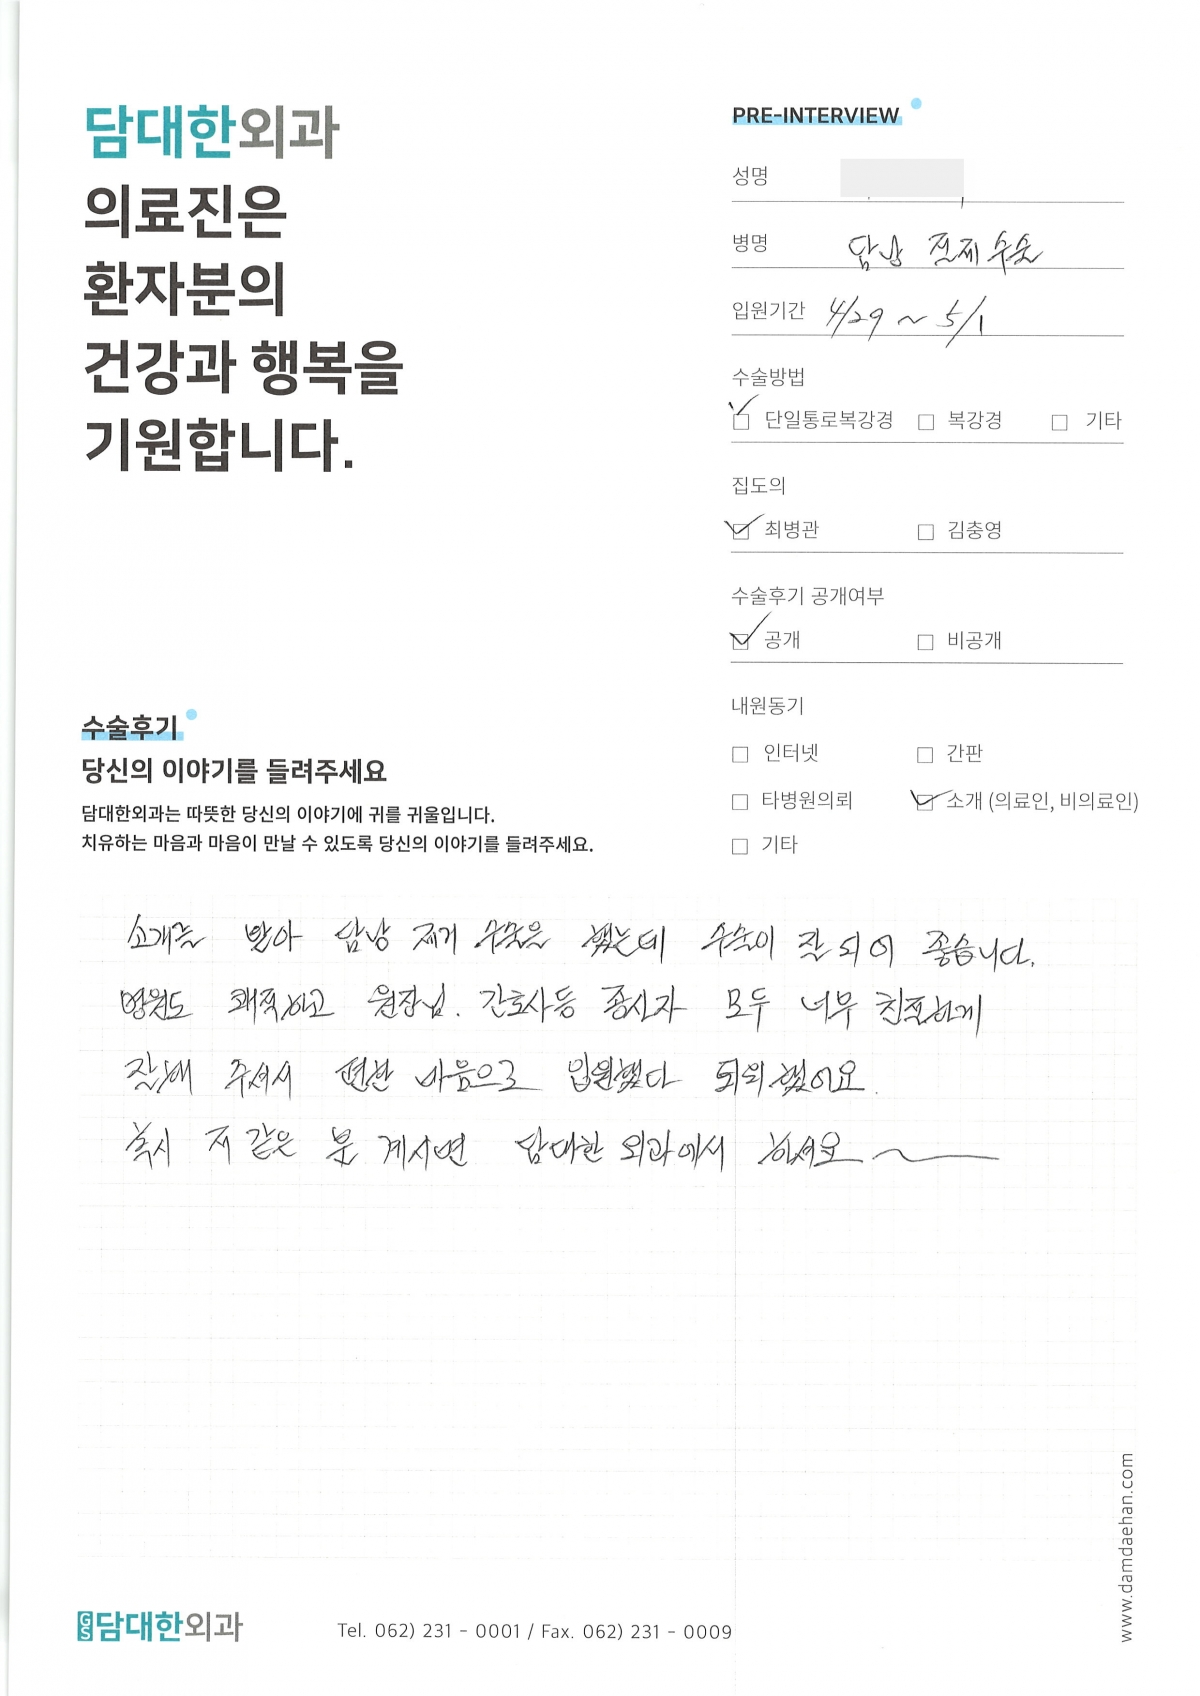 담대한외과
의료진은
환자분의
건강과 행복을
기원합니다.
PRE-INTERVIEW
성명
병명 담낭 절제수술
입원기간 4/29 ~ 5/1
수술방법
단일통로복강경 복강경 기타
집도의
최병관 김충영
수술후기 공개여부
공개 비공개
내원동기
인터넷 간판
타병원의뢰 소개 (의료인, 비의료인)
기타
수술후기
당신의 이야기를 들려주세요
담대한외과는 따뜻한 당신의 이야기에 귀를 귀울입니다.
치유하는 마음과 마음이 만날 수 있도록 당신의 이야기를 들려주세요.
소개를 받아 담낭 제거 수술을 했는데 수술이 잘 되어 좋습니다.
병원도 쾌적하고 원장님. 간호사등 종사자 모두 너무 친절하게
잘해 주셔서 편한 마음으로 입원했다 퇴원했어요.
혹시 저 같은 분 계시면 담대한 외과에서 하셔요~
GS담대한외과
Tel. 062) 231 - 0001 / Fax. 062) 231 - 0009
www.damdaehan.com